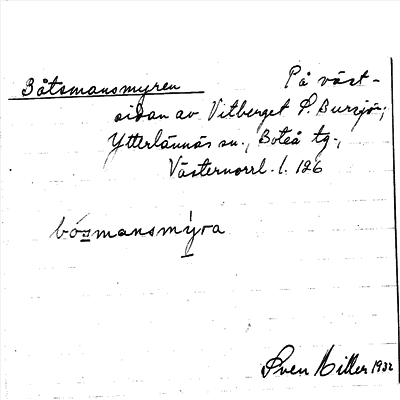 Båtsmansmyren På väst-
sidan av Vitberget S. Bursjön,
Ytterlännäs sn., Boteå tg.,
Västernorrl. l. 126
bósmansmýra
Sven Miller 1932